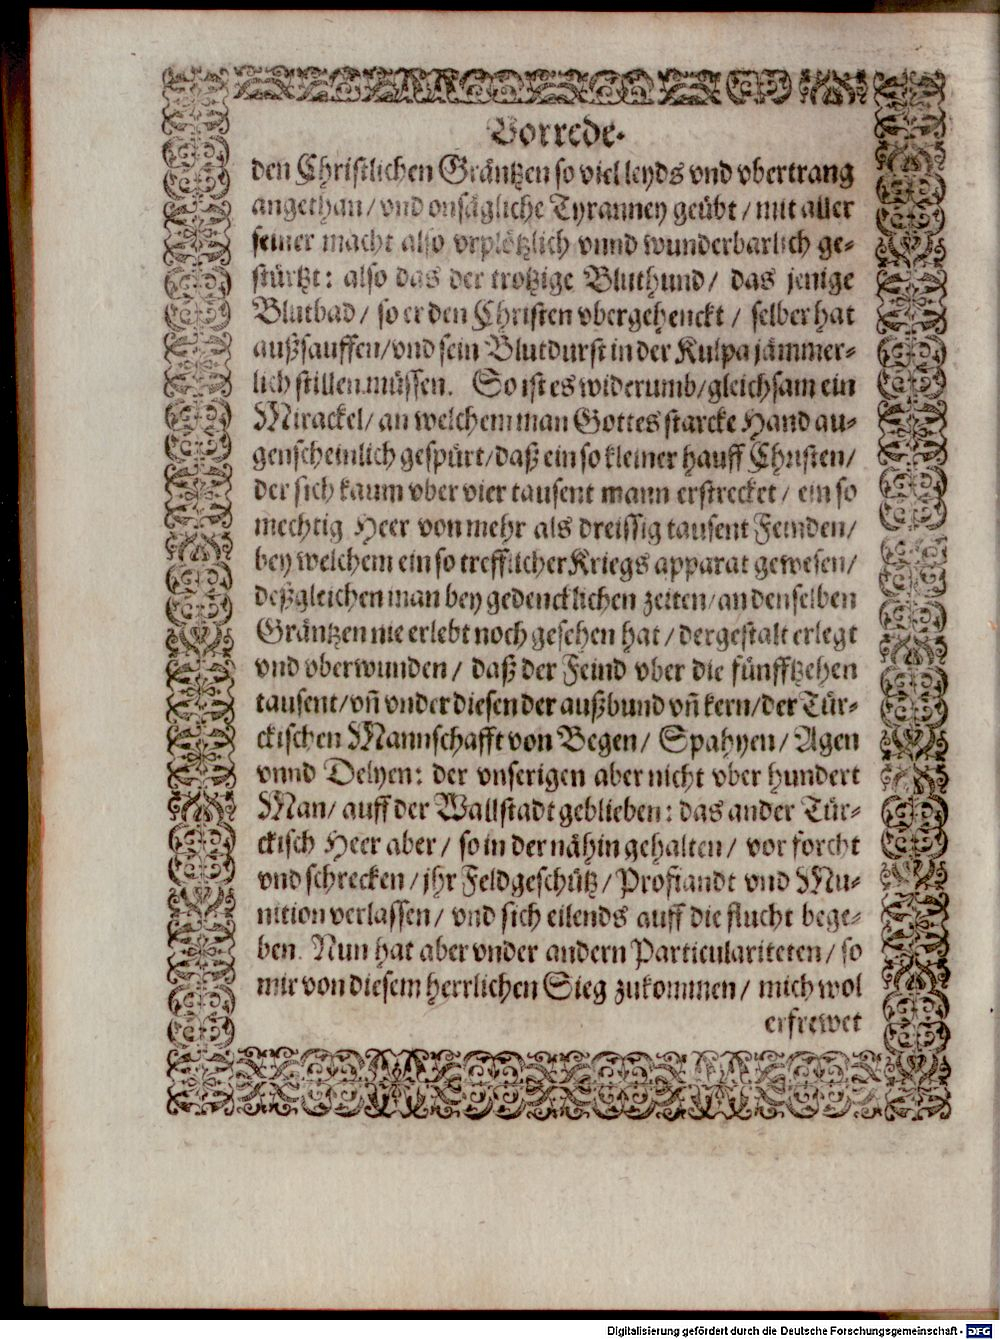 Vorrede.
den Christlichen Gräntzen so viel leyds vnd vbertrang
angethan/ vnd onsägliche Tyranney geübt/ mit aller
seiner macht also vrplötzlich vnnd wunderbarlich ge-
stürtzt: also das der trotzige Bluthund/ das jenige
Blutbad/ so er den Christen vbergehenckt/ selber hat
außsauffen/ vnd sein Blutdurst in der Kulpa jämmer-
lich stillen müssen. So ist es widerumb/ gleichsam ein
Mirackel/ an welchem man Gottes starcke Hand au-
genscheinlich gespürt/ daß ein so kleiner hauff Christen/
der sich kaum vber vier tausent mann erstrecket/ ein so
mechtig Heer von mehr als dreissig tausent Feinden/
bey welchem ein so trefflicher Kriegs apparat gewesen/
deßgleichen man bey gedencklichen zeiten/ an denselben
Gräntzen nie erlebt noch gesehen hat/ dergestalt erlegt
vnd vberwunden/ daß der Feind vber die fünfftzehen
tausent/ vñ vnder diesen der außbund vñ kern/ der Tür-
ckischen Mannschafft von Begen/ Spahyen/ Agen
vnnd Delyen: der vnserigen aber nicht vber hundert
Man/ auff der Wallstadt geblieben: das ander Tür-
ckisch Heer aber/ so in der nähin gehalten/ vor forcht
vnd schrecken/ jhr Feldgeschütz/ Profiandt vnd Mu-
nition verlassen/ vnd sich eilends auff die flucht bege-
ben. Nun hat aber vnder andern Particulariteten/ so
mir von diesem herrlichen Sieg zukommen/ mich wol
erfrewet
Digitalisierung gefördert durch die Deutsche Forschungsgemeinschaft - DFG